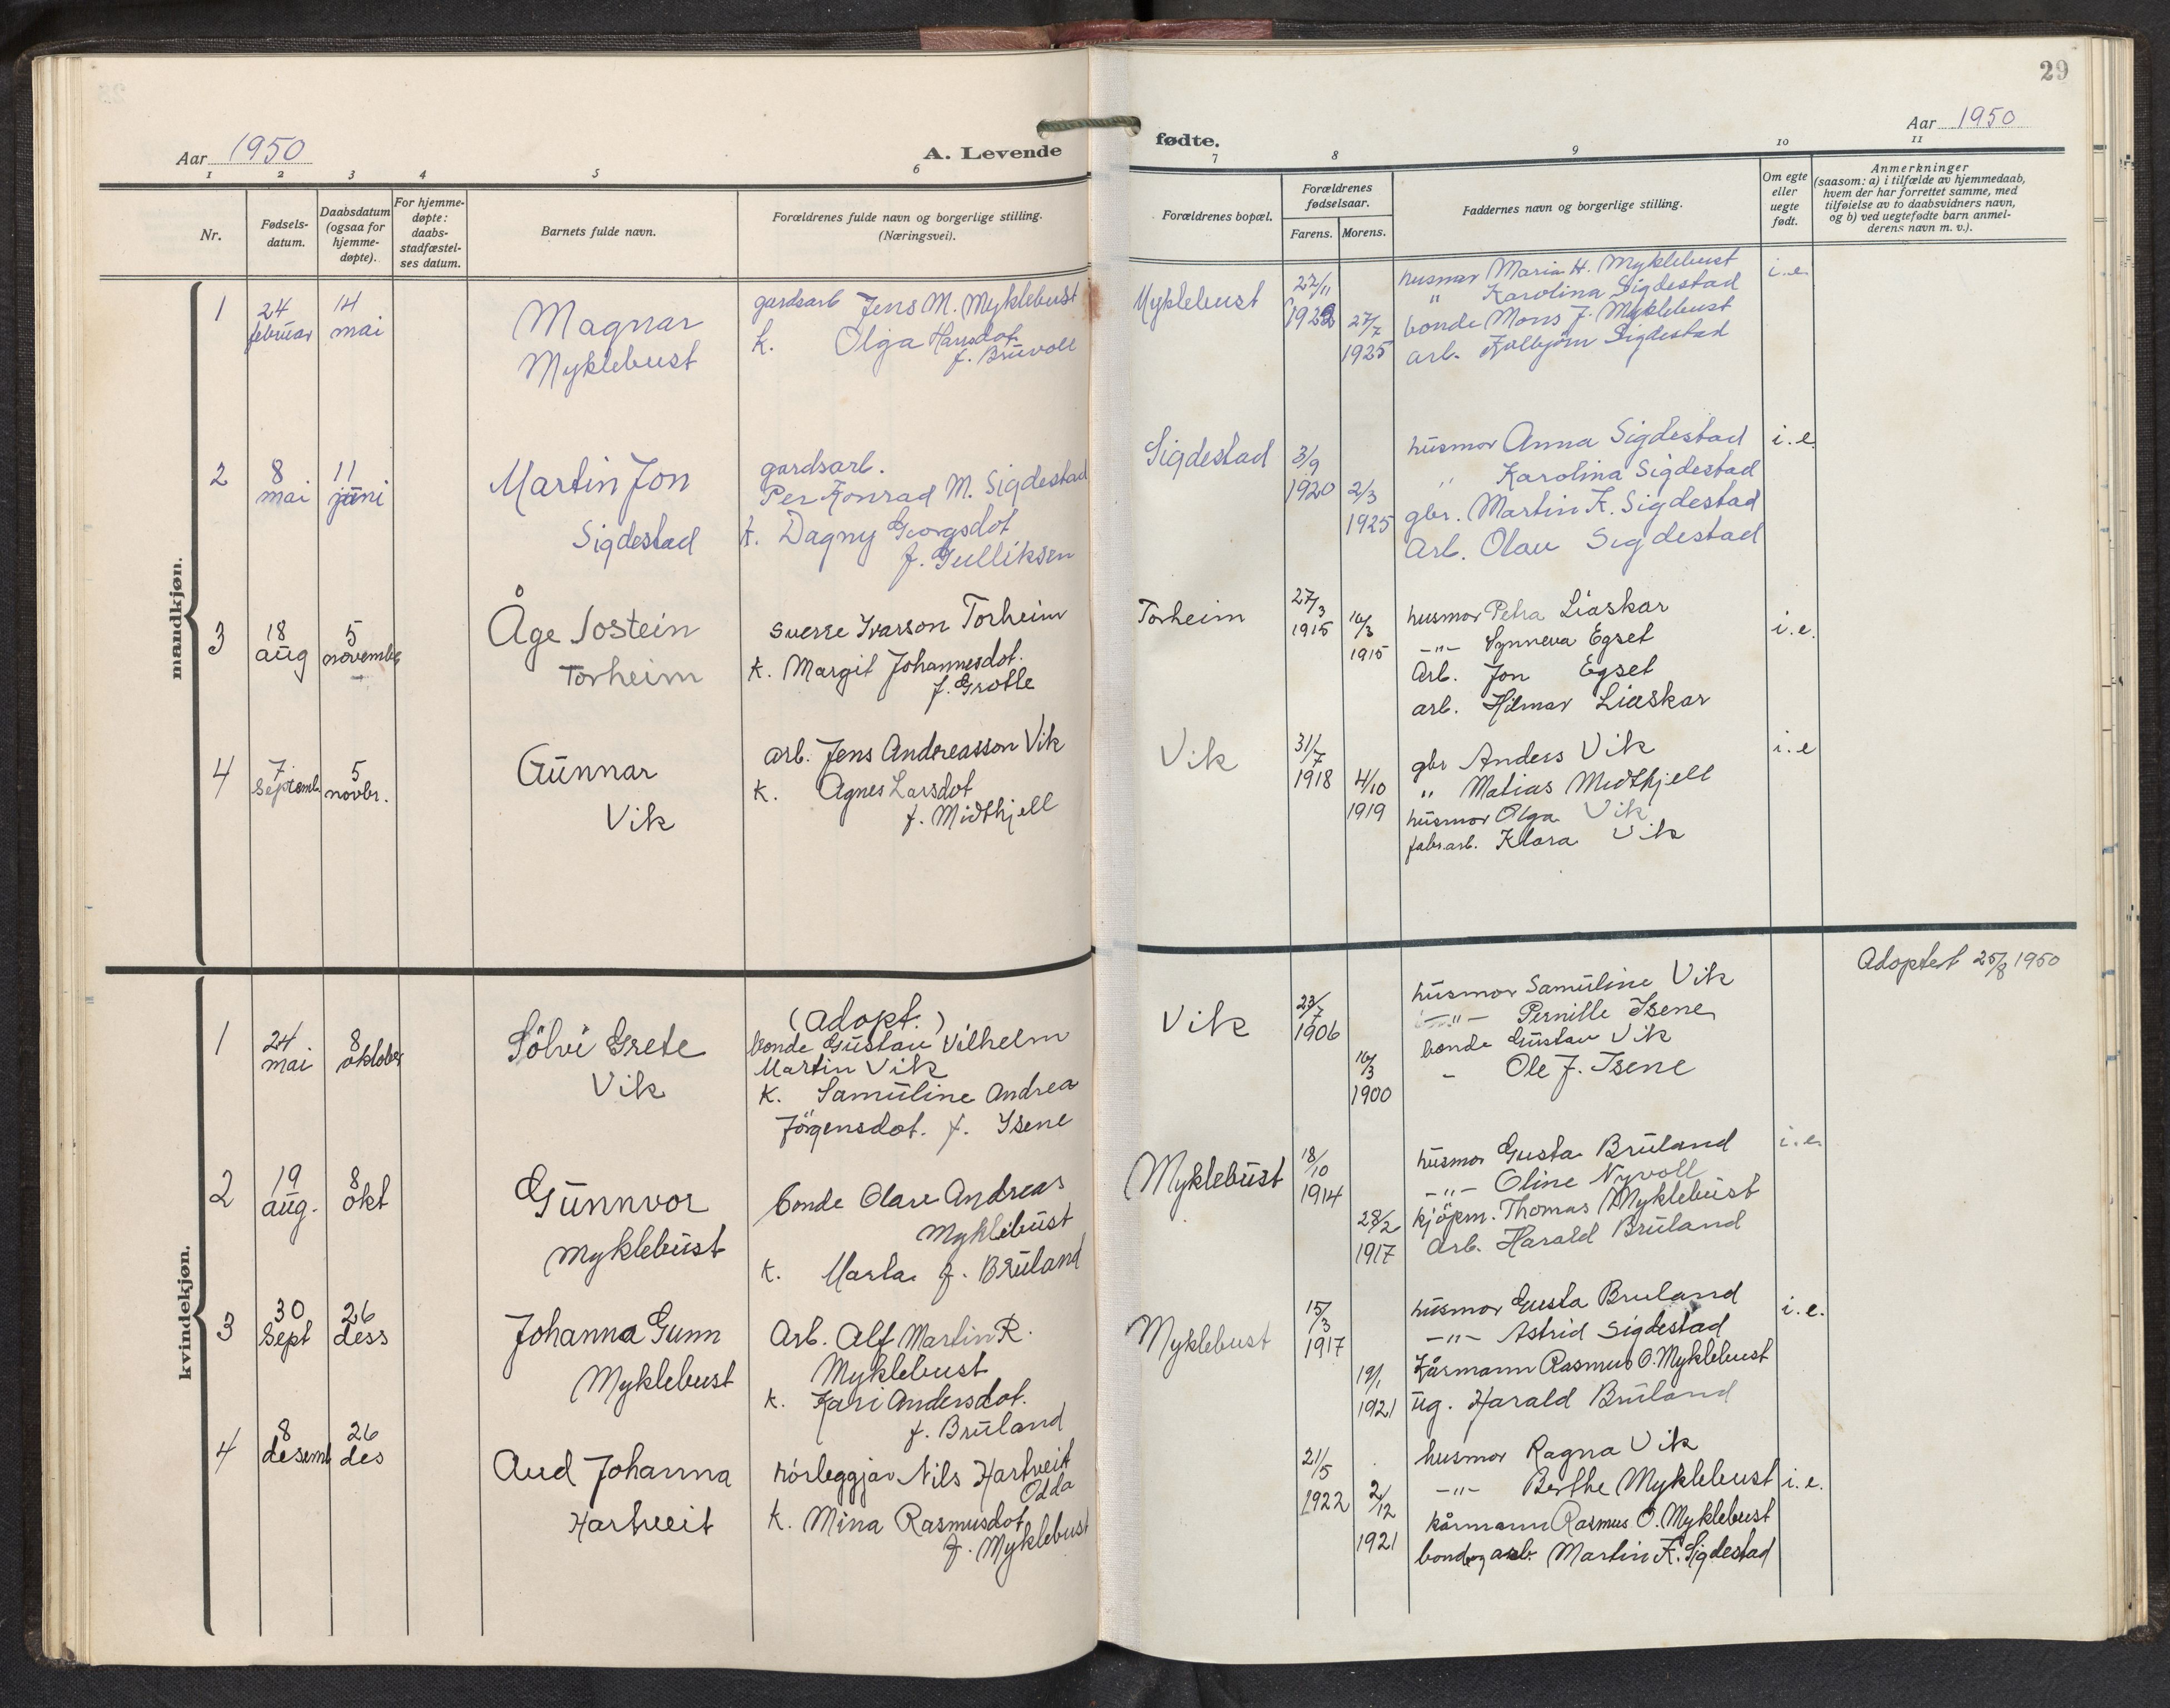 29
Aar 1950
A. Levende
fødte.
Aar 1950
1 2 3 4 5 6 7 8 9 10 11
Nr.
Fødsels-
datum.
Daabsdatum
(ogsaa for
hjemme-
døpte).
For hjemme-
døpte:
daabs-
stadfæstel-
ses datum.
Barnets fulde navn.
Forældrenes fulde navn og borgerlige stilling.
(Næringsvei).
Forældrenes bopæl.
Forældrenes
fødselsaar.
Farens. Morens.
Faddernes navn og borgerlige stilling.
Om egte
eller
uegte
født.
Anmerkninger
(saasom: a) i tilfælde av hjemmedaab,
hvem der har forrettet samme, med
tilføielse av to daabsvidners navn,
og b) ved uegtefødte barn anmel-
derens navn m. v.).
mandkjøn.
1
24
februar
14
mai
Magnar
Myklebust
gardsarb Jens M. Myklebust
k. Olga Hansdot.
f. Bruvoll
Myklebust
22/11
1922
27/7
1925
husmor Maria H. Myklebust
" Karolina Sigdestad
bonde Mons J. Myklebust
arb. Kolbjørn Sigdestad
i.e.
2
8
mai
11
juni
Martin Jon
Sigdestad
gardsarb.
Per Konrad M. Sigdestad
k. Dagny Georgsdot
f. Gulliksen
Sigdestad
3/9
1920
2/3
1925
husmor Anna Sigdestad
" Karolina Sigdestad
gbr. Martin K. Sigdestad
Arb. Olav Sigdestad
i.e.
3
18
aug
5
november
Åge Jostein
Torheim
Sverre Ivarson Torheim
k. Margit Johannesdot.
f. Grotle
Torheim
27/3
1915
16/3
1915
husmor Petra Liaskar
-"- Synneva Egset
Arb. Jon Egset
arb. Hilmar Liaskar
i.e.
4
7
septemb.
5
novbr.
Gunnar
Vik
arb. Jens Andreasson Vik
k. Agnes Larsdot
f. Midthjell
Vik
31/7
1918
4/10
1919
gbr Anders Vik
" Matias Midthjell
husmor Olga Vik
fabr.arb. Klara Vik
i.e
kvindekjøn.
1
24
mai
8
oktober
Sölvi Grete
Vik
(adopt.)
bonde Gustav Vilhelm
Martin Vik
k. Samuline Andrea
Jörgensdot. f. Isene
Vik
23/7
1906
16/3
1900
husmor Samuline Vik
-"- Pernille Isene
bonde Gustav Vik
- Ole J. Isene
Adoptert 25/8 1950
2
19
aug.
8
okt
Gunnvor
Myklebust
bonde Olav Andreas
Myklebust
k. Marta f. Bruland
Myklebust
18/10
1914
28/2
1917
husmor Gusta Bruland
-"- Oline Nyvoll
kjöpm. Thomas Myklebust
Arb. Harald Bruland
i.e.
3
30
sept
26
dess
Johanna Gunn
Myklebust
Arb. Alf Martin R.
Myklebust
k. Kari Andersdot.
f. Bruland
Myklebust
15/3
1917
19/1
1921
husmor Gusta Bruland
-"- Astrid Sigdestad
Kårmann Rasmus O. Myklebust
ug. Harald Bruland
i.e.
4
8
desemb
26
des
Aud Johanna
Hartveit
rörleggjar Nils Hartveit
Odda
k. Mina Rasmusdot.
f. Myklebust
21/5
1922
2/12
1921
husmor Ragna Vik
-"- Berthe Myklebust
kårmann Rasmus O. Myklebust
bonde og arb. Martin K. Sigdestad
i.e.